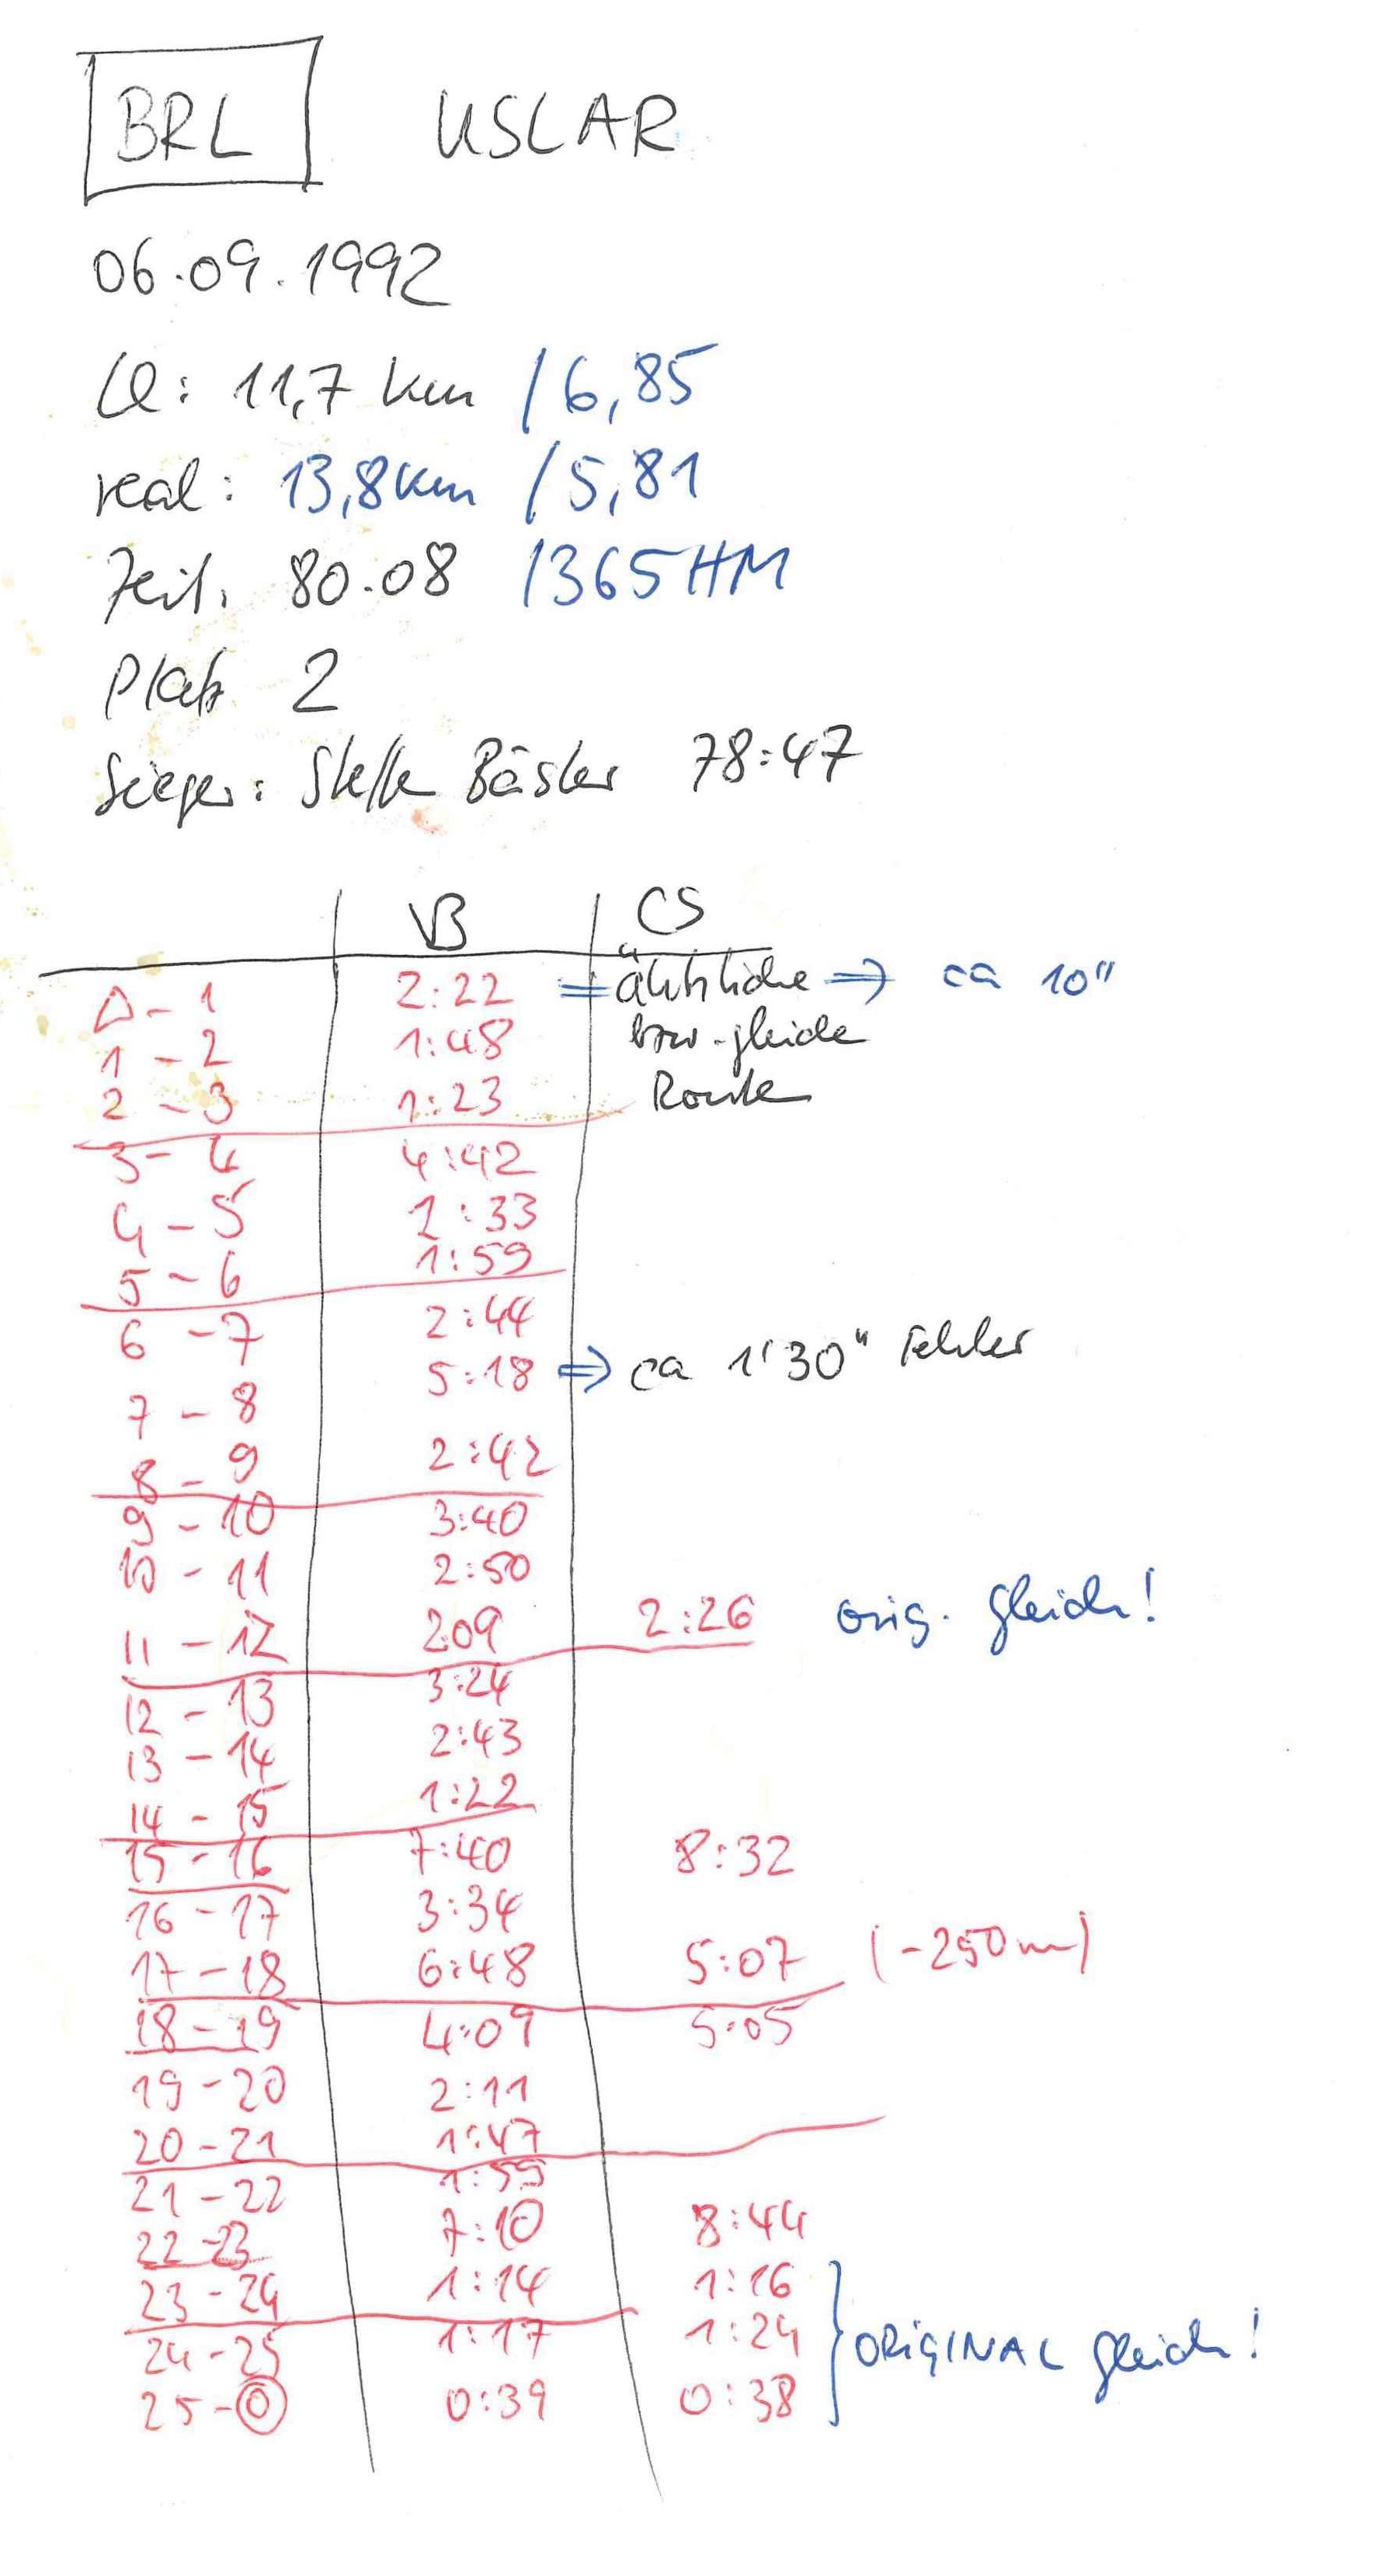 BRL USLAR
06.09.1992
LL: 11,7 km / 6,85
real: 13,8km / 5,81
Zeit. 80.08 / 365HM
Platz 2
Sieger: Steffen Bäsler 78:47
VB CS
△ - 1 2:22 = ähnliche ⇒ ca 10"
1 - 2 1:48 bzw. gleiche
2 - 3 1:23 Route
3 - 4 4:42
4 - 5 1:33
5 - 6 1:59
6 - 7 2:44
7 - 8 5:18 ⇒ ca 1'30" Fehler
8 - 9 2:42
9 - 10 3:40
10 - 11 2:50
11 - 12 2:09 2:26 orig. gleich!
12 - 13 3:24
13 - 14 2:43
14 - 15 1:22
15 - 16 7:40 8:32
16 - 17 3:34
17 - 18 6:48 5:07 (-250m)
18 - 19 4:09 5:05
19 - 20 2:11
20 - 21 1:47
21 - 22 1:59
22 - 23 7:10 8:44
23 - 24 1:14 1:16
24 - 25 1:17 1:24 } ORIGINAL gleich!
25 - ◎ 0:39 0:38